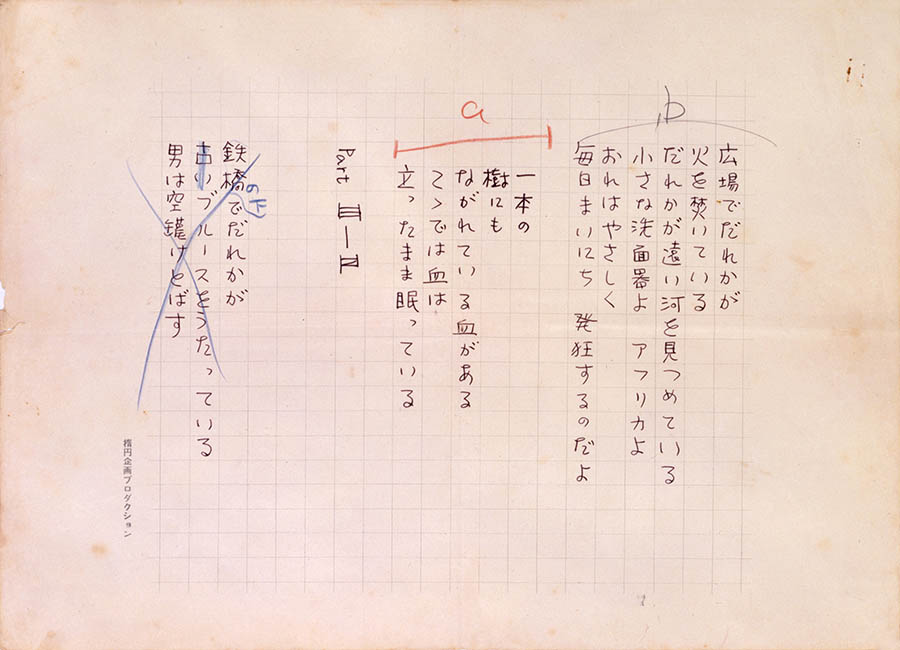 b
広場でだれかが
火を焚いている
だれかが遠い河を見つめている
小さな洗面器よ アフリカよ
おれはやさしく
毎日まいにち 発狂するのだよ
a
一本の
樹にも
ながれている血がある
そこでは血は
立ったまま眠っている
Part
鉄橋の下でだれかが
古いブルースをうたっている
男は空罐けとばす
楕円企画プロダクション